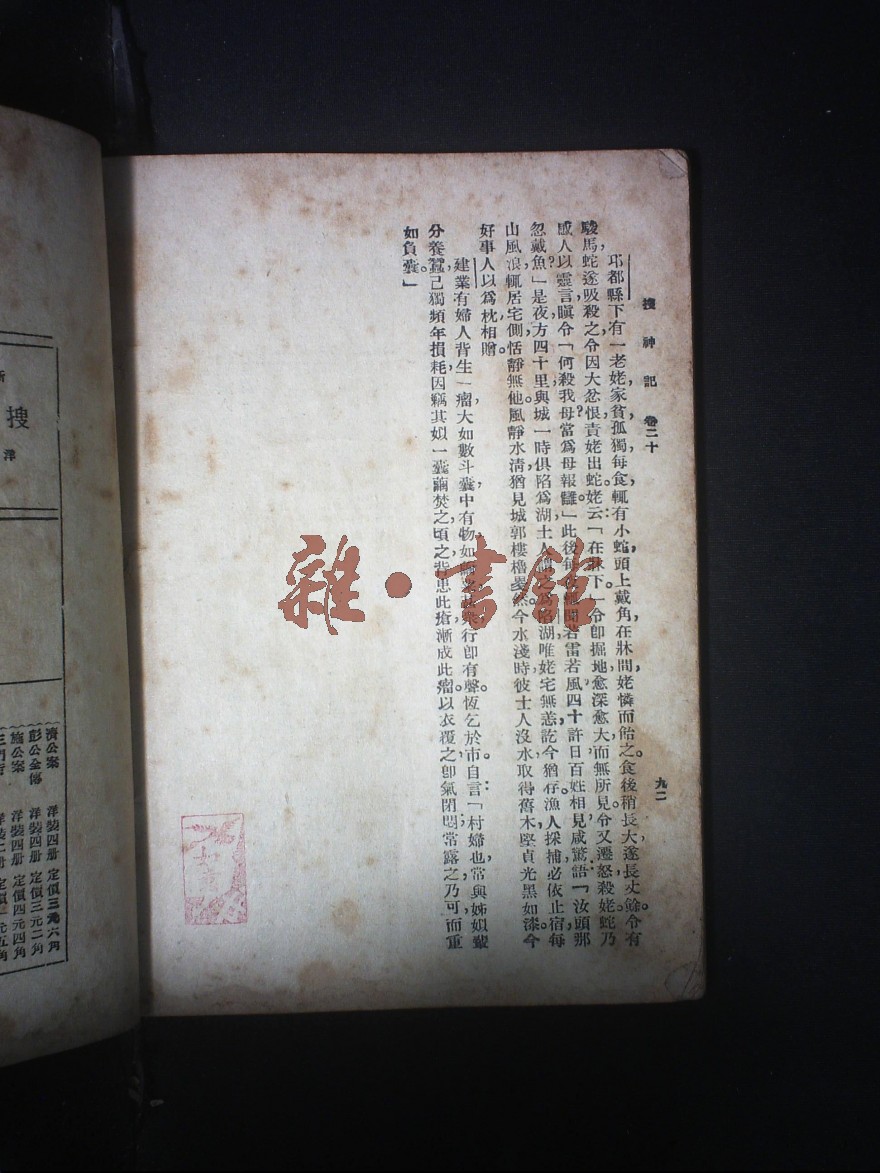 搜神記 卷二十 九二
邛都縣下有一老姥家貧孤獨每食輒有小蛇，頭上戴角，在牀間，姥憐而飴之。食後稍長大，遂長丈餘。令有
駿馬，蛇遂吸殺之。令因大忿恨，責姥出蛇。姥云：「在牀下。」令即掘地，愈深愈大，而無所見。令又遷怒，殺姥。蛇乃
感人以靈言，瞋令「何殺我母？當為母報讎。」此後每夜輒聞若雷若風，四十許日。百姓相見，咸驚語：「汝頭那
忽戴魚？」是夜，方四十里與城一時俱陷為湖，土人謂之為陷湖，唯姥宅無恙，訖今猶存。漁人採捕，必依止宿，每
山風浪，輒居宅側，恬靜無他。風靜水清，猶見城郭樓櫓畟然。今水淺時，彼土人沒水，取得舊木，堅貞光黑如漆。今
好事人以為枕，相贈。
建業有婦人背生一瘤，大如數斗囊，中有物，如 行即有聲。恆乞於市。自言：「村婦也，常與姊姒輩
分養蠶，己獨頻年損耗，因竊其姒一囊繭焚之，頃之，背患此瘡，漸成此瘤。以衣覆之，即氣閉悶；常露之，乃可，而重
如負囊。」
雜·書館
搜
洋
濟公案 洋裝四册 定價三元六角
彭公全傳 洋裝四册 定價三元二角
施公案 洋裝四册 定價四元四角